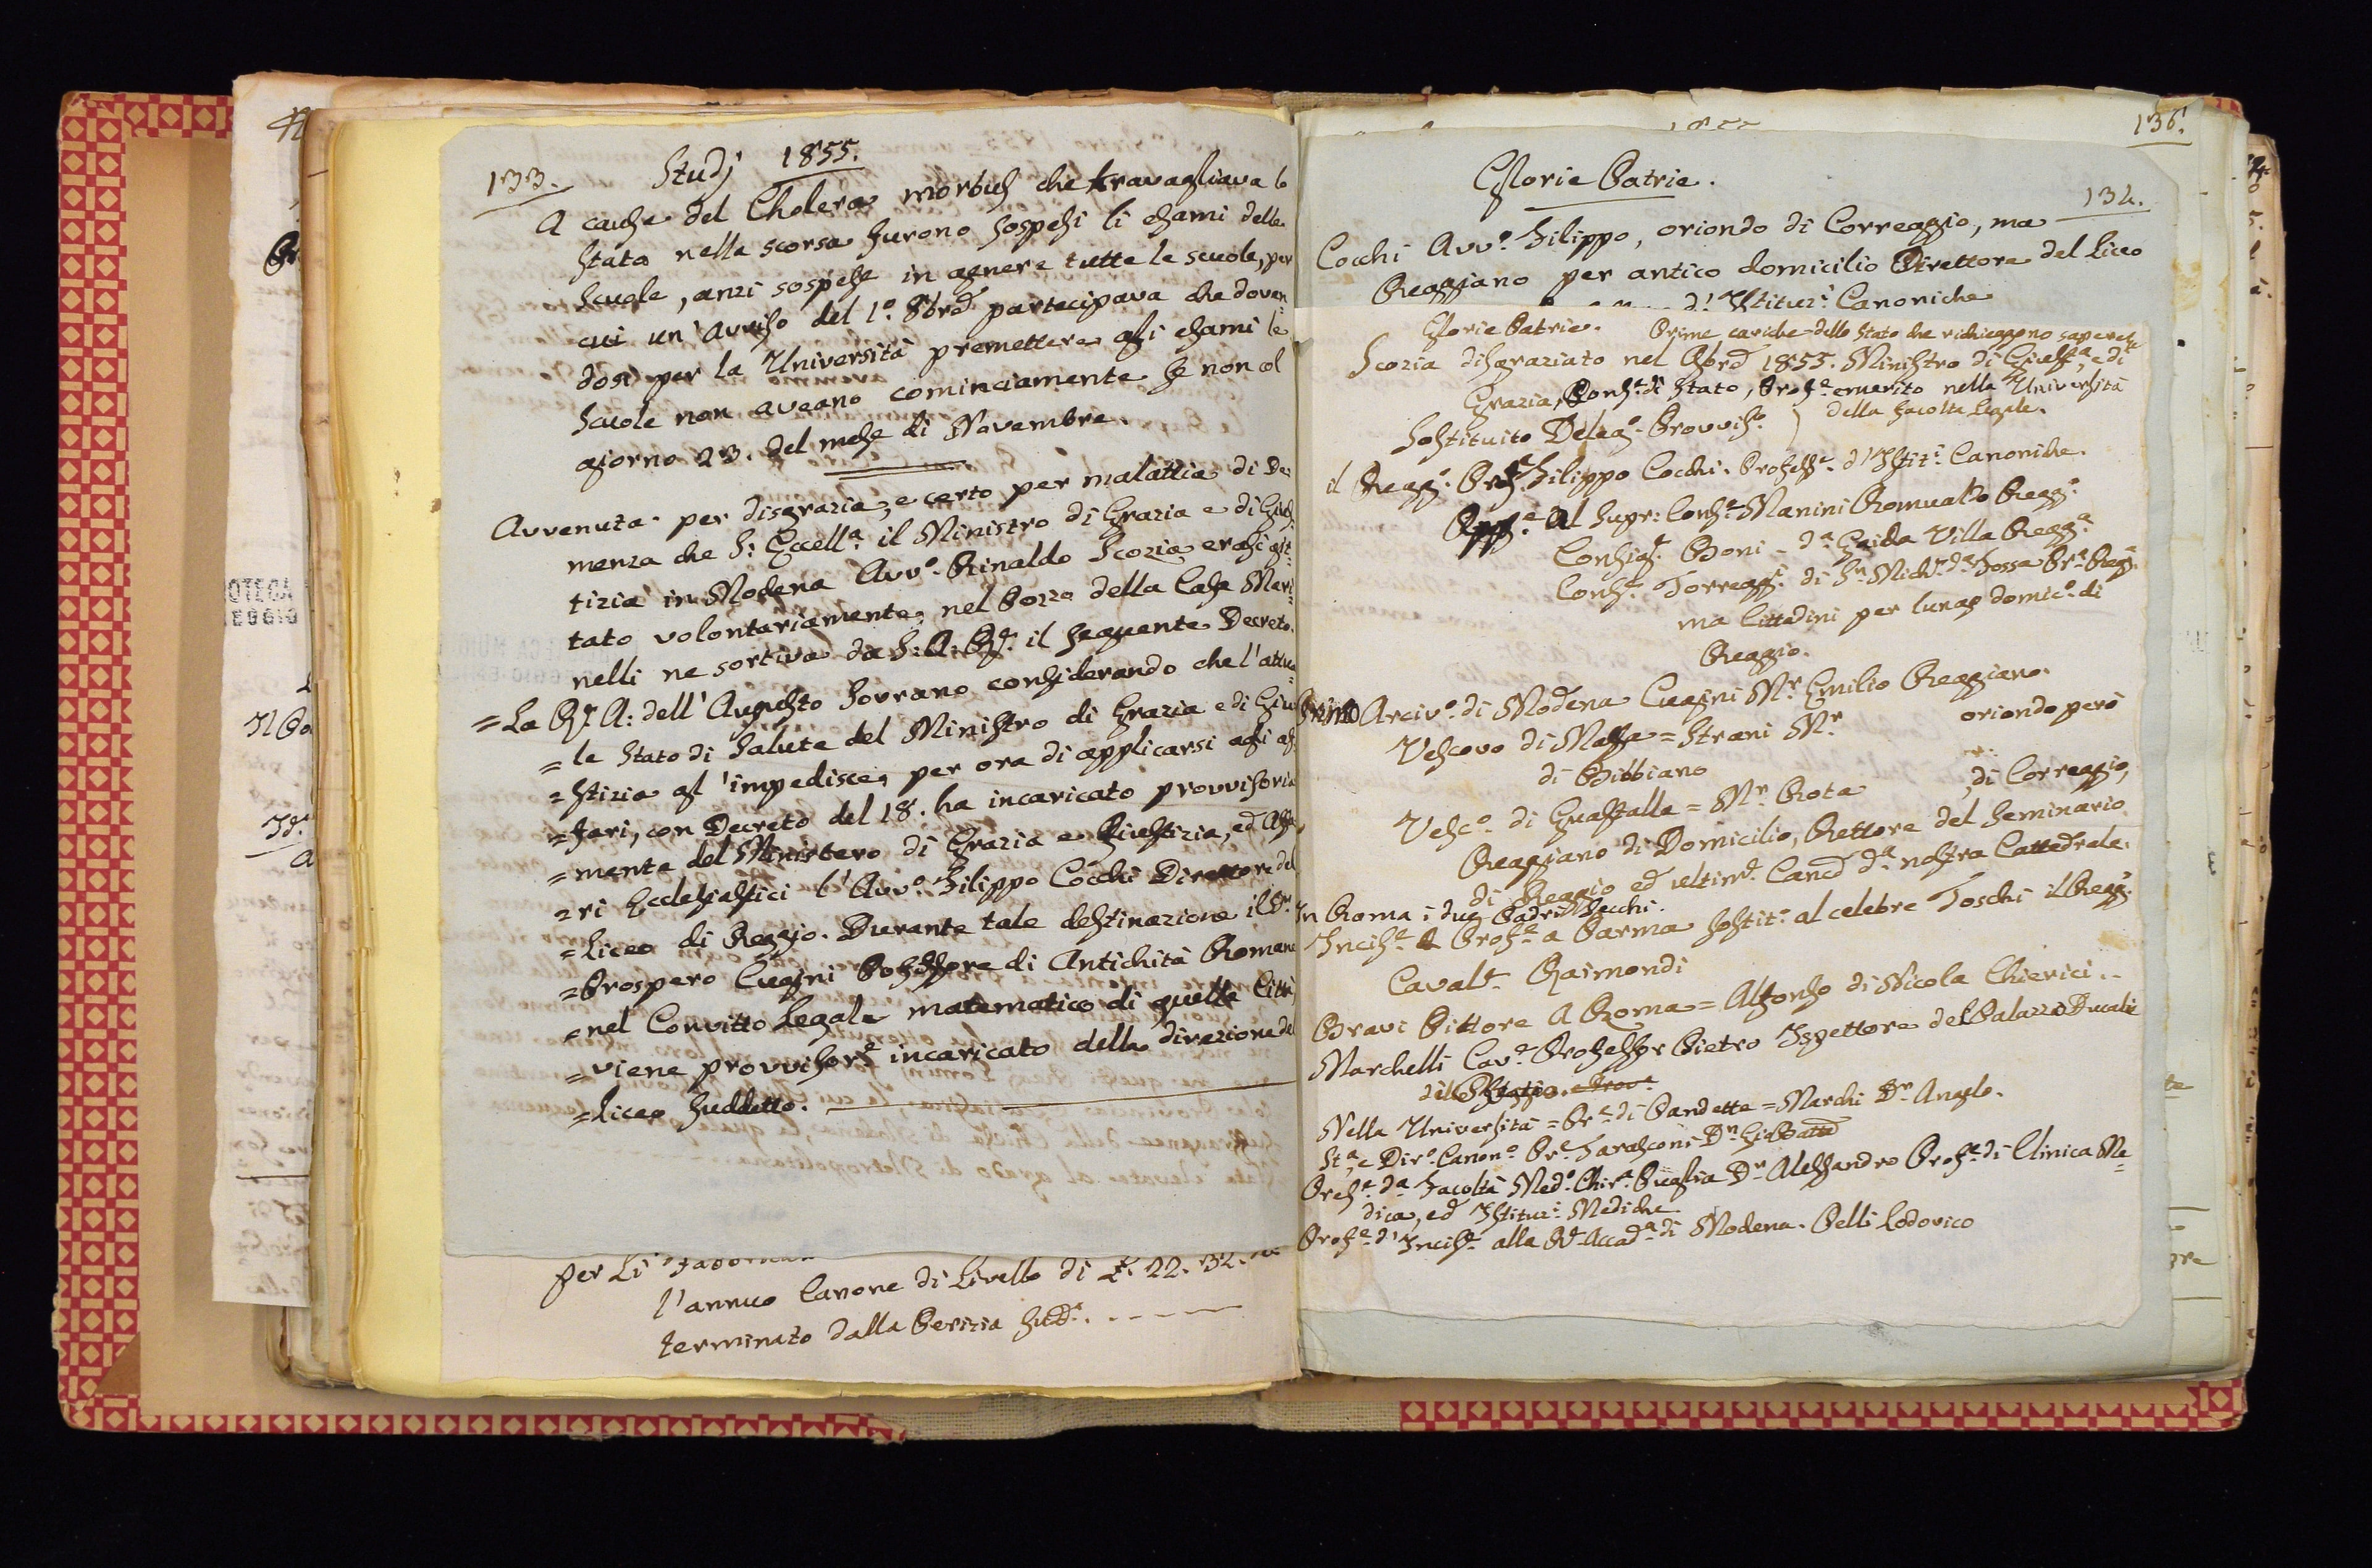 133.
Studj 1855.
A causa del Cholera morbus che travagliava lo
Stato nella scorsa furono sospesi li esami delle
Scuole, anzi sospese in genere tutte le scuole, per
cui un' avviso del 1.o 8brē partecipava che doven
dosi per la Università premettere gli esami le
Scuole non aveano cominciamento se non col
giorno 23. del mese di Novembre.
Avvenuta per disgrazia, e certo per malattia di De
menza che S: Eccell.a il Ministro di Grazia e di Gius
tizia in Modena Avv.o Rinaldo Scozia erasi git
tato volontariamente nel Pozzo della Casa Meri
nelli ne sortiva da S: A: R.le il seguente Decreto.
=La R.le A: dell'Augusto Sovrano considerando che l'attua
=le Stato di Salute del Ministro di Grazia e di Giu
=stizia gl'impedisce, per ora di applicarsi agli af
=fari, con Decreto del 18. ha incaricato provvisoria
=mente del Ministero di Grazia e Giustizia, ed Affa
=ri Ecclesiastici l'Avv.o Filippo Cocchi Direttore del
=Liceo di Reggio. Durante tale destinazione il Dr.
=Prospero Cugini Professore di Antichità Romane
=nel Convitto Legale matematico di quella Città
=viene provvisor.e incaricato della direzione del
=Liceo suddetto.
per Li
l'annuo Canone di Livello di £. 22. 32.
terminato dalla Perizia sudd.a
136.
Glorie Patrie.
134.
Cocchi Avv.o Filippo, oriondo di Correggio, ma
Reggiano per antico domicilio Direttore del Liceo
d'Istituz.i Canoniche
Glorie Patrie. Prime cariche dello Stato che richieggono sapere
Scozia disgraziato nel 9brē 1855. Ministro di Giust.a, e di
Grazia, Cons.e di Stato, Prof.e emerito nella Università
della facoltà Legale.
Sostituito Deleg.o Provvis.o
il Regg.o Prof. Filippo Cocchi. Profess.e d'Istit.i Canoniche.
Al Supr: Cons.o Manini Romualdo Regg.o
Consigl.e Boni - d.a Gaida Villa Regg.a
Cons.e Torregg.i di S.n Mich.e d.a Fossa Pr.a Reg.
ma Cittadini per lungo domic.o di
Reggio.
Primo Arciv.o di Modena Cugini M.r Emilio Reggiano.
Vescovo di Massa = Strani M.r oriondo però
di Bibbiano
Vesc.o di Guastalla = M.r Rota di Correggio,
Reggiano di Domicilio, Rettore del Seminario
di Reggio ed Canc̄ d.a nostra Cattedrale.
In Roma i due Padri Secchi.
Incis.e Prof.e a Parma sostit.o al celebre Toschi il Regg.
Caval.e Raimondi
Bravi Pittore A Roma = Alfonso di Nicola Chierici..
Marchelli Cav.e Professor Pietro Ispettore del Palazzo Ducale
di Reggio.
Nella Università = Pr.e di Pandette = Marchi Dr. Angelo.
St.a, e Dir.o Canon.o Pr.e Tarasconi Dn. Gio Batta
Pres.e d.a Facoltà Med.o Chir.a Puglia Dr. Alessandro Prof.e di Clinica Me
dica, ed Istituz.i Mediche
Prof.e d'Incis.e alla R.le Accad.a di Modena. Belli Lodovico